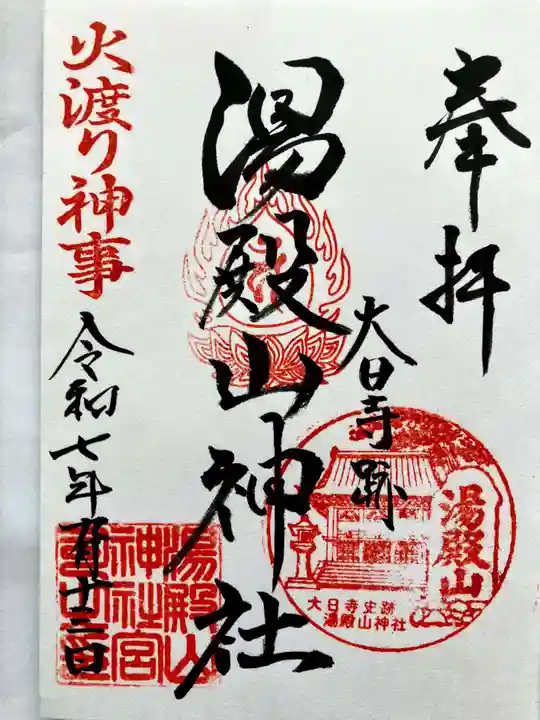 奉拝
大日寺跡
湯殿山神社
火渡り神事
令和七年
十三日
湯殿山
大日寺史跡
湯殿山神社
湯殿山
神社宮